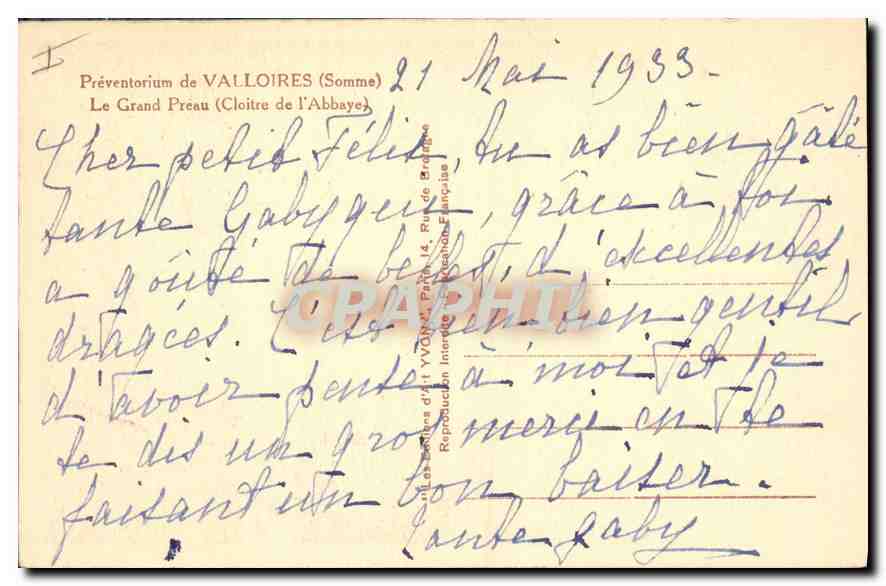 I
Préventorium de VALLOIRES (Somme)
Le Grand Préau (Cloître de l'Abbaye)
21 Mai 1933.
Cher petit Félix, tu as bien gâté
tante Gaby qui, grâce à toi
a goûté de belles, d'excellentes
dragées. C'est bien bien gentil
d'avoir pensé à moi et je
te dis un gros merci en te
faisant un bon baiser.
Tante Gaby
"Les Editions d'Art YVON", Paris, 14, Rue de Bretagne
Reproduction Interdite Fabrication Française
CPAPHIL